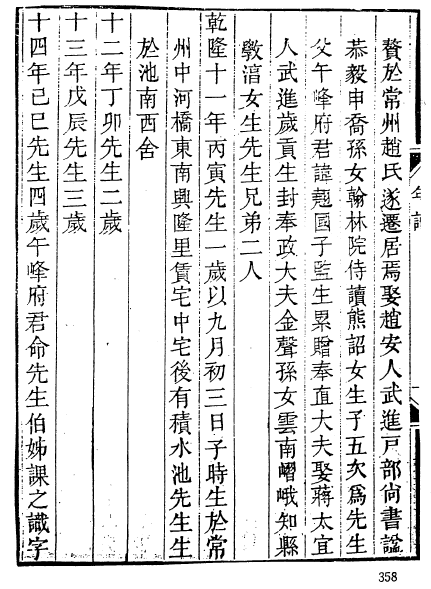 贅於常州趙氏遂遷居焉娶趙安人武進戸部尚書謚
恭毅申喬孫女翰林院侍讀熊詔女生子五次爲先生
父午峰府君諱翹國子監生累贈奉直大夫娶蔣太宜
人武進歲貢生封奉政大夫金聲孫女雲南嶍峨知縣
斆淓女生先生兄弟二人
乾隆十一年丙寅先生一歲以九月初三日子時生於常
州中河橋東南興隆里賃宅中宅後有積水池先生生
於池南西舍
十二年丁卯先生二歲
十三年戊辰先生三歲
十四年己巳先生四歲午峰府君命先生伯姊課之識字
年譜
一
358